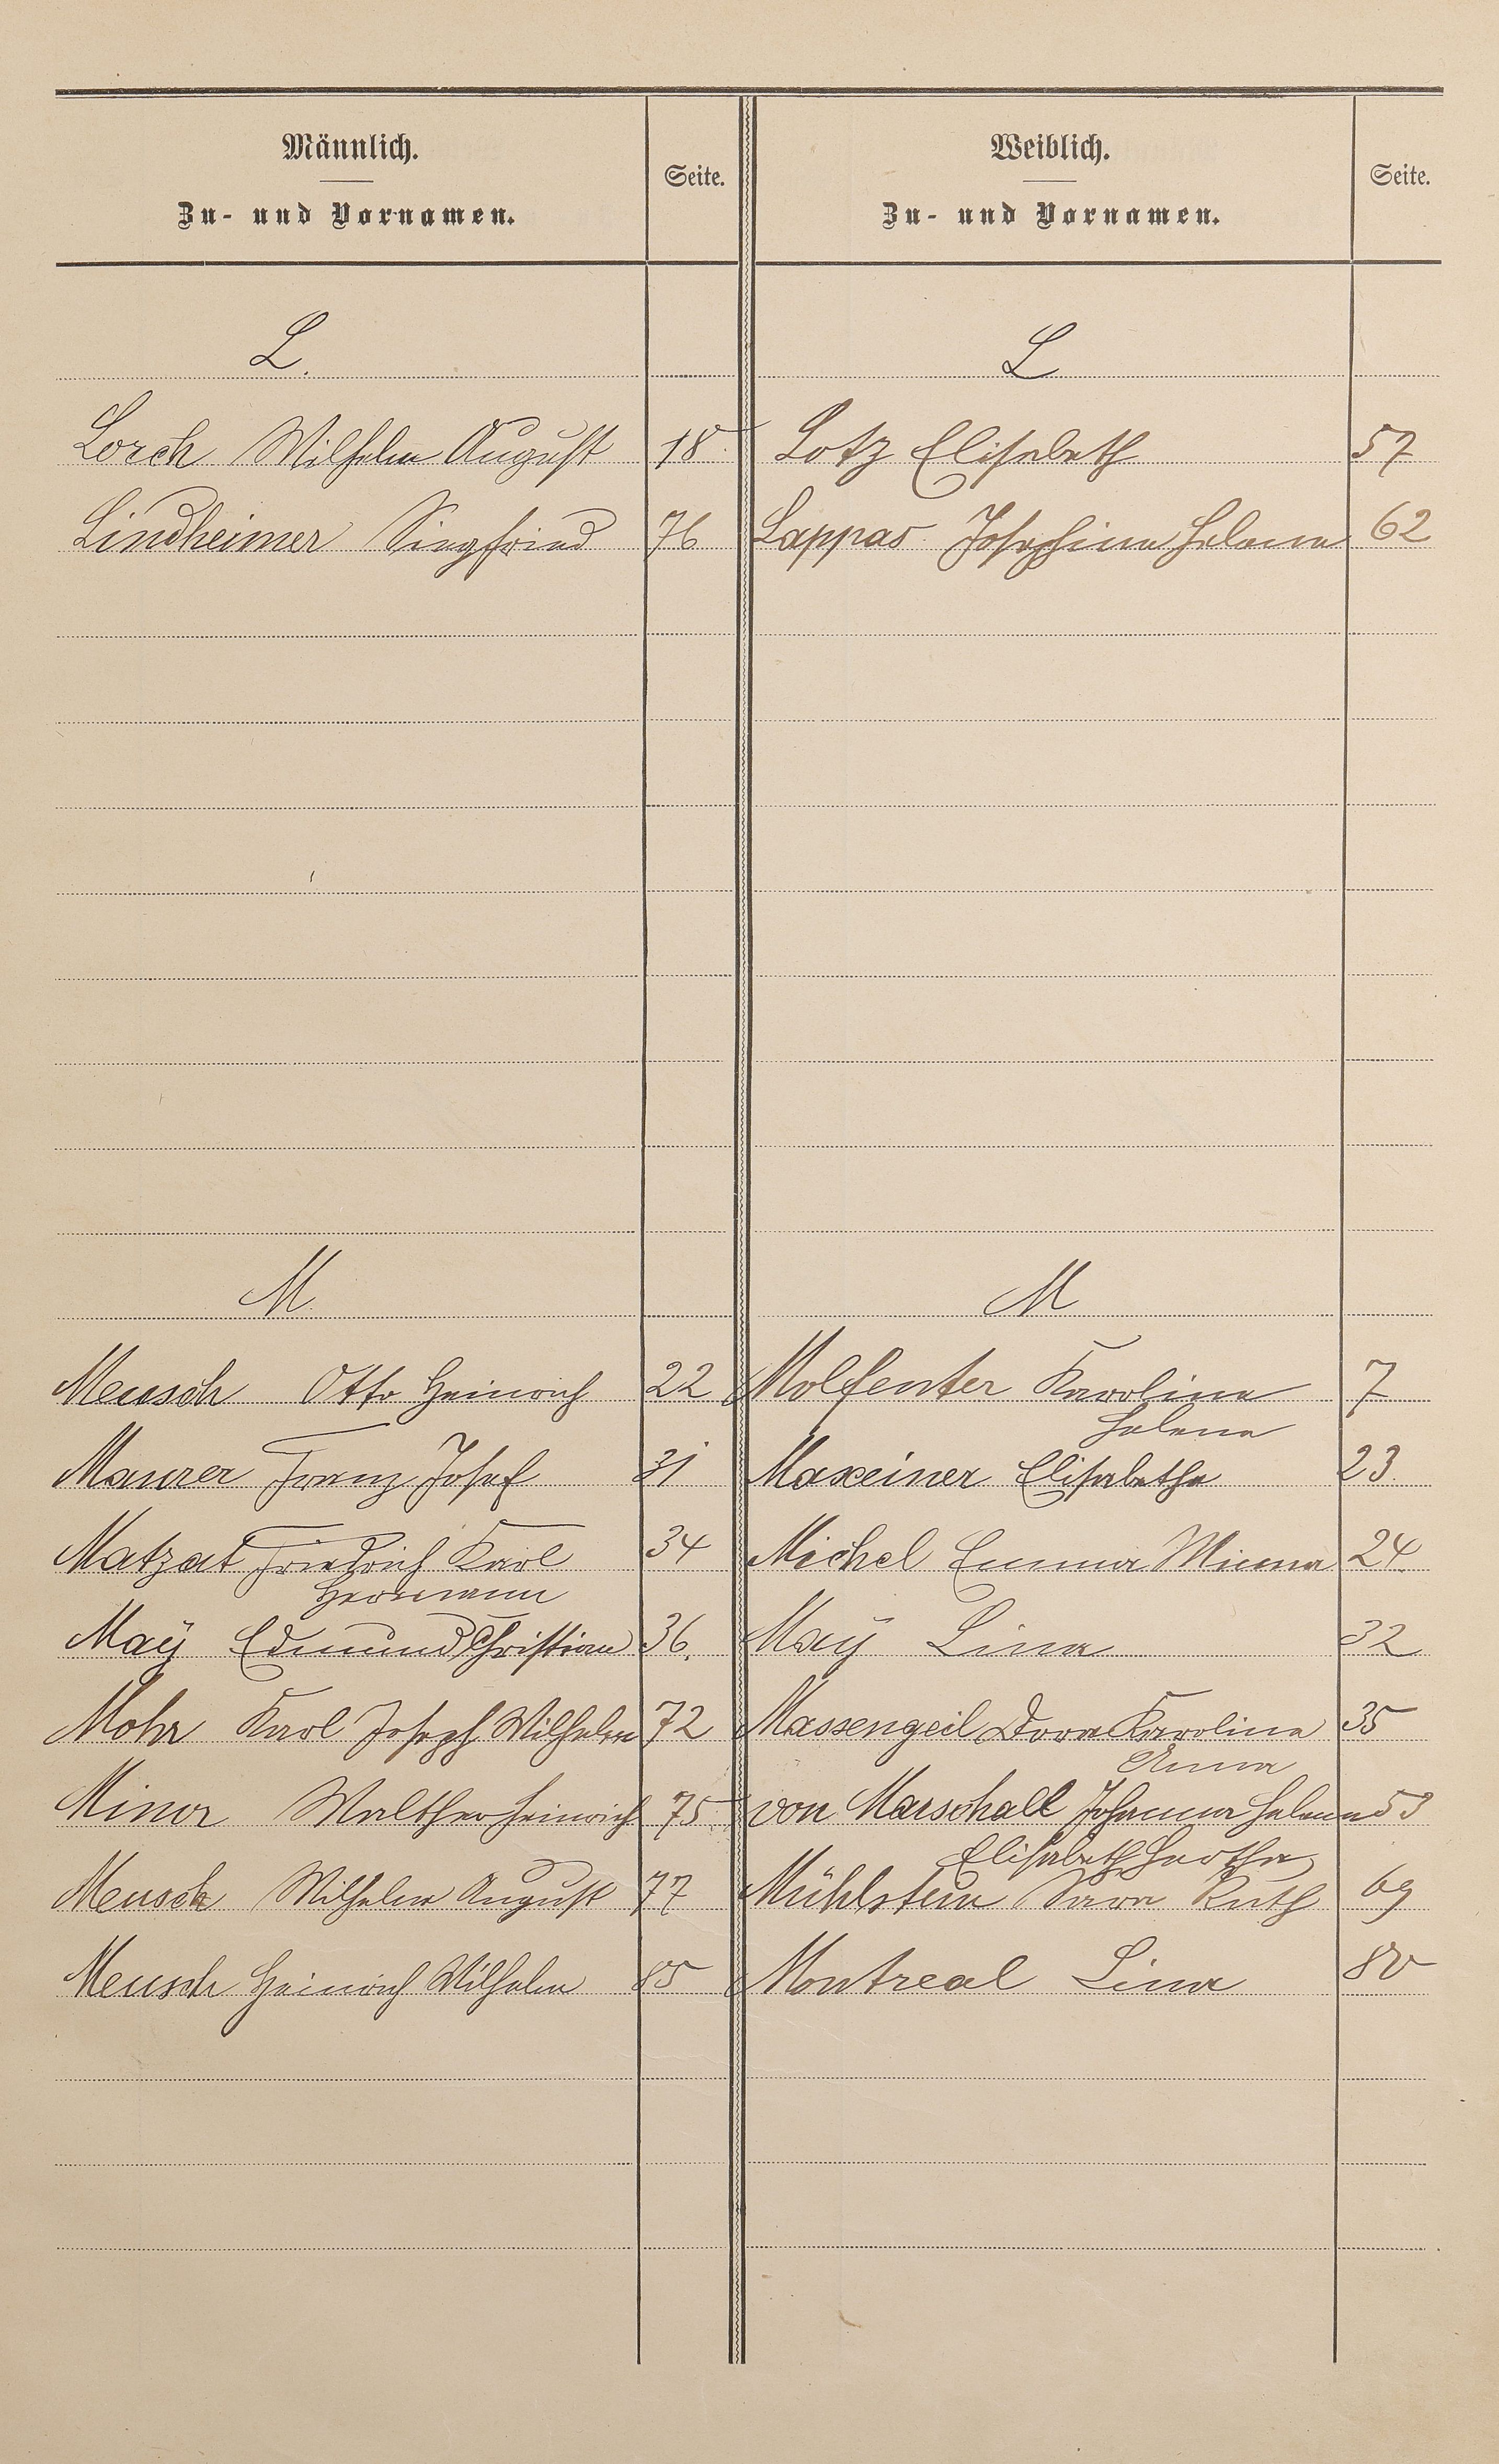 Männlich.
Zu- und Vornamen.
Seite.
Weiblich.
Zu- und Vornamen.
Seite.
L.
L
Lorch Wilhelm August 18
Lotz Elisabeth 57
Lindheimer Siegfried 76
Lappas Josephine Helene 62
M.
M
Meusch Otto Heinrich 22
Molfenter Karoline 7
Helene
Maurer Franz Josef 31
Maxeiner Elisabetha 23
Matzat Friedrich Karl 34
Hermann
Michel Emma Minna 24
Maÿ Edmund Christian 36.
Maÿ Lina 32
Mohr Karl Joseph Wilhelm 72
Massengeil Dora Karoline 35
Anna
Minor Walther Heinrich 75
von Marschall Johanna Helene 53
Elisabeth Hertha
Meusch Wilhelm August 77
Mühlstein Sara Ruth 69
Meusch Heinrich Wilhelm 85
Montreal Lina 80